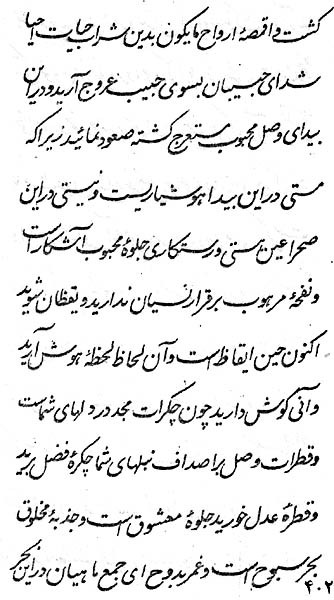 کشت و اقمصهٔ ارواح ما یکون بدین شرار جایت احیا
شد ای حبیبان بسوی حبیب عروج آرید و در این
بیدای وصل محبوب مستعرج کشته صعود نمائید زیرا که
مستی در این بیدا هوشیاریست و نیستی در این
صحرا عین هستی و رستکاری جلوهٔ محبوب آشکار است
و نفحهٔ مرهوب برقرار نسیان ندارید و یقظان شوید
اکنون حین ایقاظ است و آن لحاظ لحظهٔ هوش آرید
و آنی کوش دارید چون چکرات مجدد در دلهای شماست
و قطرات وصل بر اصداف نبلهای شما چکرهٔ فضل برید
و قطرهٔ عدل خورید جلوهٔ معشوق است و جذبهٔ مخلوق
بحر سبوح است و غمر یدوح ای جمع ماهیان در این بحر
۴۰۲